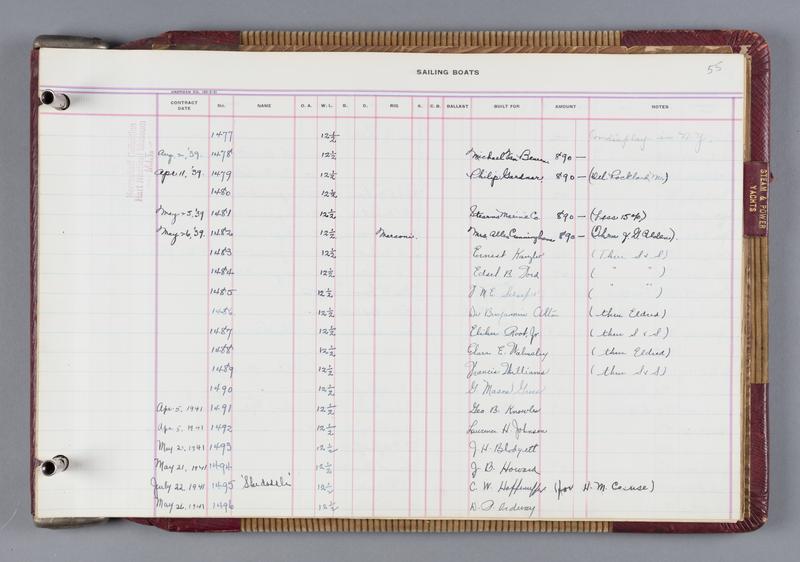 SAILING BOATS 55
CONTRACT DATE No. NAME O. A. W. L. B. D. RIG S. C.B. BALLAST BUILT FOR AMOUNT NOTES
1477 12½ N.Y.
Aug. 2, '39. 1478 12½ Michael Van Beuren $90 —
Apr. 11, '39. 1479 12½ Philip Gardner $90 — (Del. Rockland Me)
1480 12½
May 25, '39 1481 12½ Stearns Marine Co. $90 — (Less 15%)
May 26, '39. 1482 12½ Marconi. Mrs. Allen Cunningham $90 — (Thru J. G. Alden).
1483 12½ Ernest Kanzler (Thru S & S)
1484 12½ Edsel B. Ford ( " " )
1485 12½ ( " " )
1486 12½ Dr Benjamin (thru Eldred)
1487 12½ Elihu Root, Jr (thru S & S)
1488 12½ E. Walmsley (thru Eldred)
1489 12½ Francis Williams (thru S & S)
1490 12½ G
Apr 5, 1941 1491 12½ Geo B. Knowles
Apr 5, 1941 1492 12½ Laurence H. Johnson
May 21, 1941 1493 12½ J. H. Blodgett
May 21, 1941 1494 12½ J. B. Howard
July 22, 1941 1495 12½ C. W. (for H. M.
May 26, 1941 1496 12½ Ordway
STEAM & POWER YACHTS